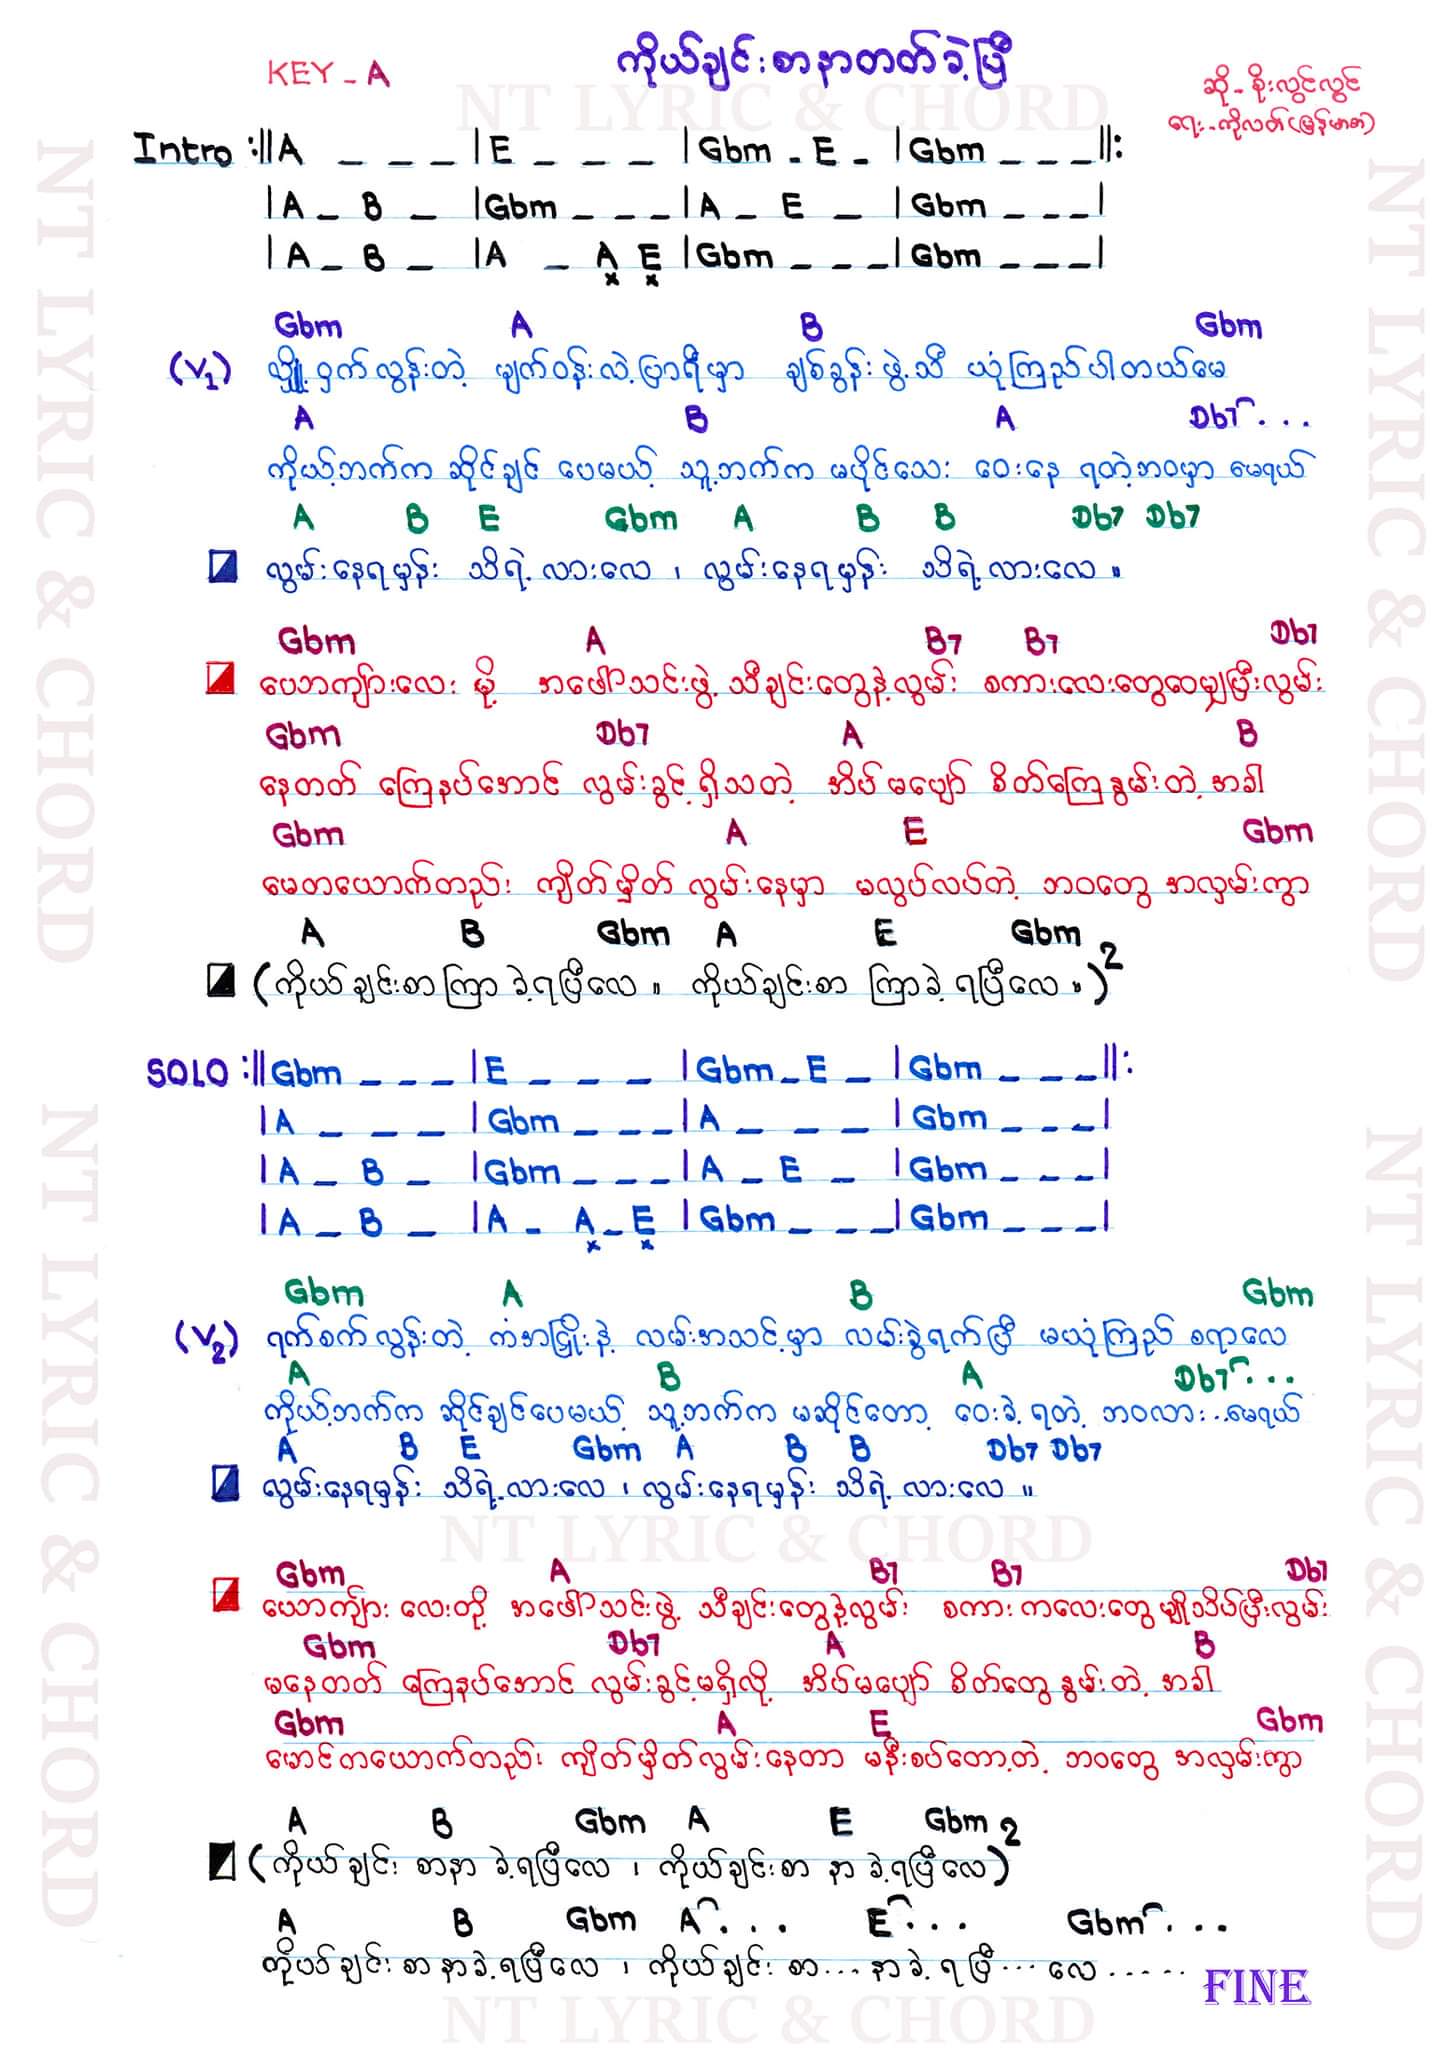 ကိုယ်ချင်းစာနာတတ်ခဲ့ပြီ
KEY - A
ဆို - စိုးလွင်လွင်
ရေး - ကိုလတ်(မြန်မာစာ)
NT LYRIC & CHORD
Intro :||A _ _ _ |E _ _ _ |Gbm - E - |Gbm _ _ _||:
|A _ B _ |Gbm _ _ _|A _ E _ |Gbm _ _ _|
|A _ B _ |A _ A E |Gbm _ _ _|Gbm _ _ _|
x x
Gbm A B Gbm
(V1) လျှို့ဝှက်လွန်းတဲ့ မျက်ဝန်းလဲ့ပြာရီမှာ ချစ်ခွန်းဖွဲ့သီ ယုံကြည်ပါတယ်မေ
A B A Db7...
ကိုယ့်ဘက်က ဆိုင်ချင် ပေမယ့် သူ့ဘက်က မပိုင်သေး ဝေးနေ ရတဲ့ဘဝမှာ မေရယ်
A B E Gbm A B B Db7 Db7
လွမ်းနေရမှန်း သိရဲ့လားလေ ၊ လွမ်းနေရမှန်း သိရဲ့လားလေ ။
Gbm A B7 B7 Db7
ယောကျ်ားလေး မို့ အဖေါ်သင်းဖွဲ့ သီချင်းတွေနဲ့လွမ်း စကားလေးတွေဝေမျှပြီးလွမ်း
Gbm Db7 A B
နေတတ် ကြေနပ်အောင် လွမ်းခွင့်ရှိသတဲ့ အိပ်မပျော် စိတ်ကြေနွမ်းတဲ့အခါ
Gbm A E Gbm
မေတယောက်တည်း ကျိတ်မှိတ်လွမ်းနေမှာ မလွပ်လပ်တဲ့ ဘဝတွေ အလှမ်းကွာ
A B Gbm A E Gbm
(ကိုယ်ချင်းစာကြာခဲ့ရပြီလေ ။ ကိုယ်ချင်းစာ ကြာခဲ့ ရပြီလေ ။)2
SOLO :||Gbm _ _ _|E _ _ _ |Gbm_E _ |Gbm _ _ _||:
|A _ _ _ |Gbm _ _ _|A _ _ _ |Gbm _ _ _|
|A _ B _ |Gbm _ _ _|A _ E _ |Gbm _ _ _|
|A _ B _ |A - A_E |Gbm _ _ _|Gbm _ _ _|
x x
Gbm A B Gbm
(V2) ရက်စက်လွန်းတဲ့ ကံအငြှိုးနဲ့ လမ်းအသင့်မှာ လမ်းခွဲရက်ပြီ မယုံကြည် စရာလေ
A B A Db7...
ကိုယ့်ဘက်က ဆိုင်ချင်ပေမယ့် သူ့ဘက်က မဆိုင်တော့ ဝေးခဲ့ရတဲ့ ဘဝလား..မေရယ်
A B E Gbm A B B Db7 Db7
လွမ်းနေရမှန်း သိရဲ့လားလေ ၊ လွမ်းနေရမှန်း သိရဲ့လားလေ ။
NT LYRIC & CHORD
Gbm A B7 B7 Db7
ယောကျ်ား လေးတို့ အဖေါ်သင်းဖွဲ့ သီချင်းတွေနဲ့လွမ်း စကား ကလေးတွေ မျှိုသိပ်ပြီးလွမ်း
Gbm Db7 A B
မနေတတ် ကြေနပ်အောင် လွမ်းခွင့်မရှိလို့ အိပ်မပျော် စိတ်တွေ နွမ်းတဲ့ အခါ
Gbm A E Gbm
မောင်တယောက်တည်း ကျိတ်မှိတ်လွမ်းနေတာ မနီးစပ်တော့တဲ့ ဘဝတွေ အလှမ်းကွာ
A B Gbm A E Gbm
(ကိုယ်ချင်း စာနာ ခဲ့ရပြီလေ ၊ ကိုယ်ချင်းစာ နာ ခဲ့ရပြီလေ)2
A B Gbm A... E... Gbm...
ကိုယ်ချင်း စာ နာခဲ့ရပြီလေ ၊ ကိုယ်ချင်း စာ... နာခဲ့ ရပြီ... လေ......
FINE
NT LYRIC & CHORD
NT LYRIC & CHORD
NT LYRIC & CHORD
NT LYRIC & CHORD
NT LYRIC & CHORD